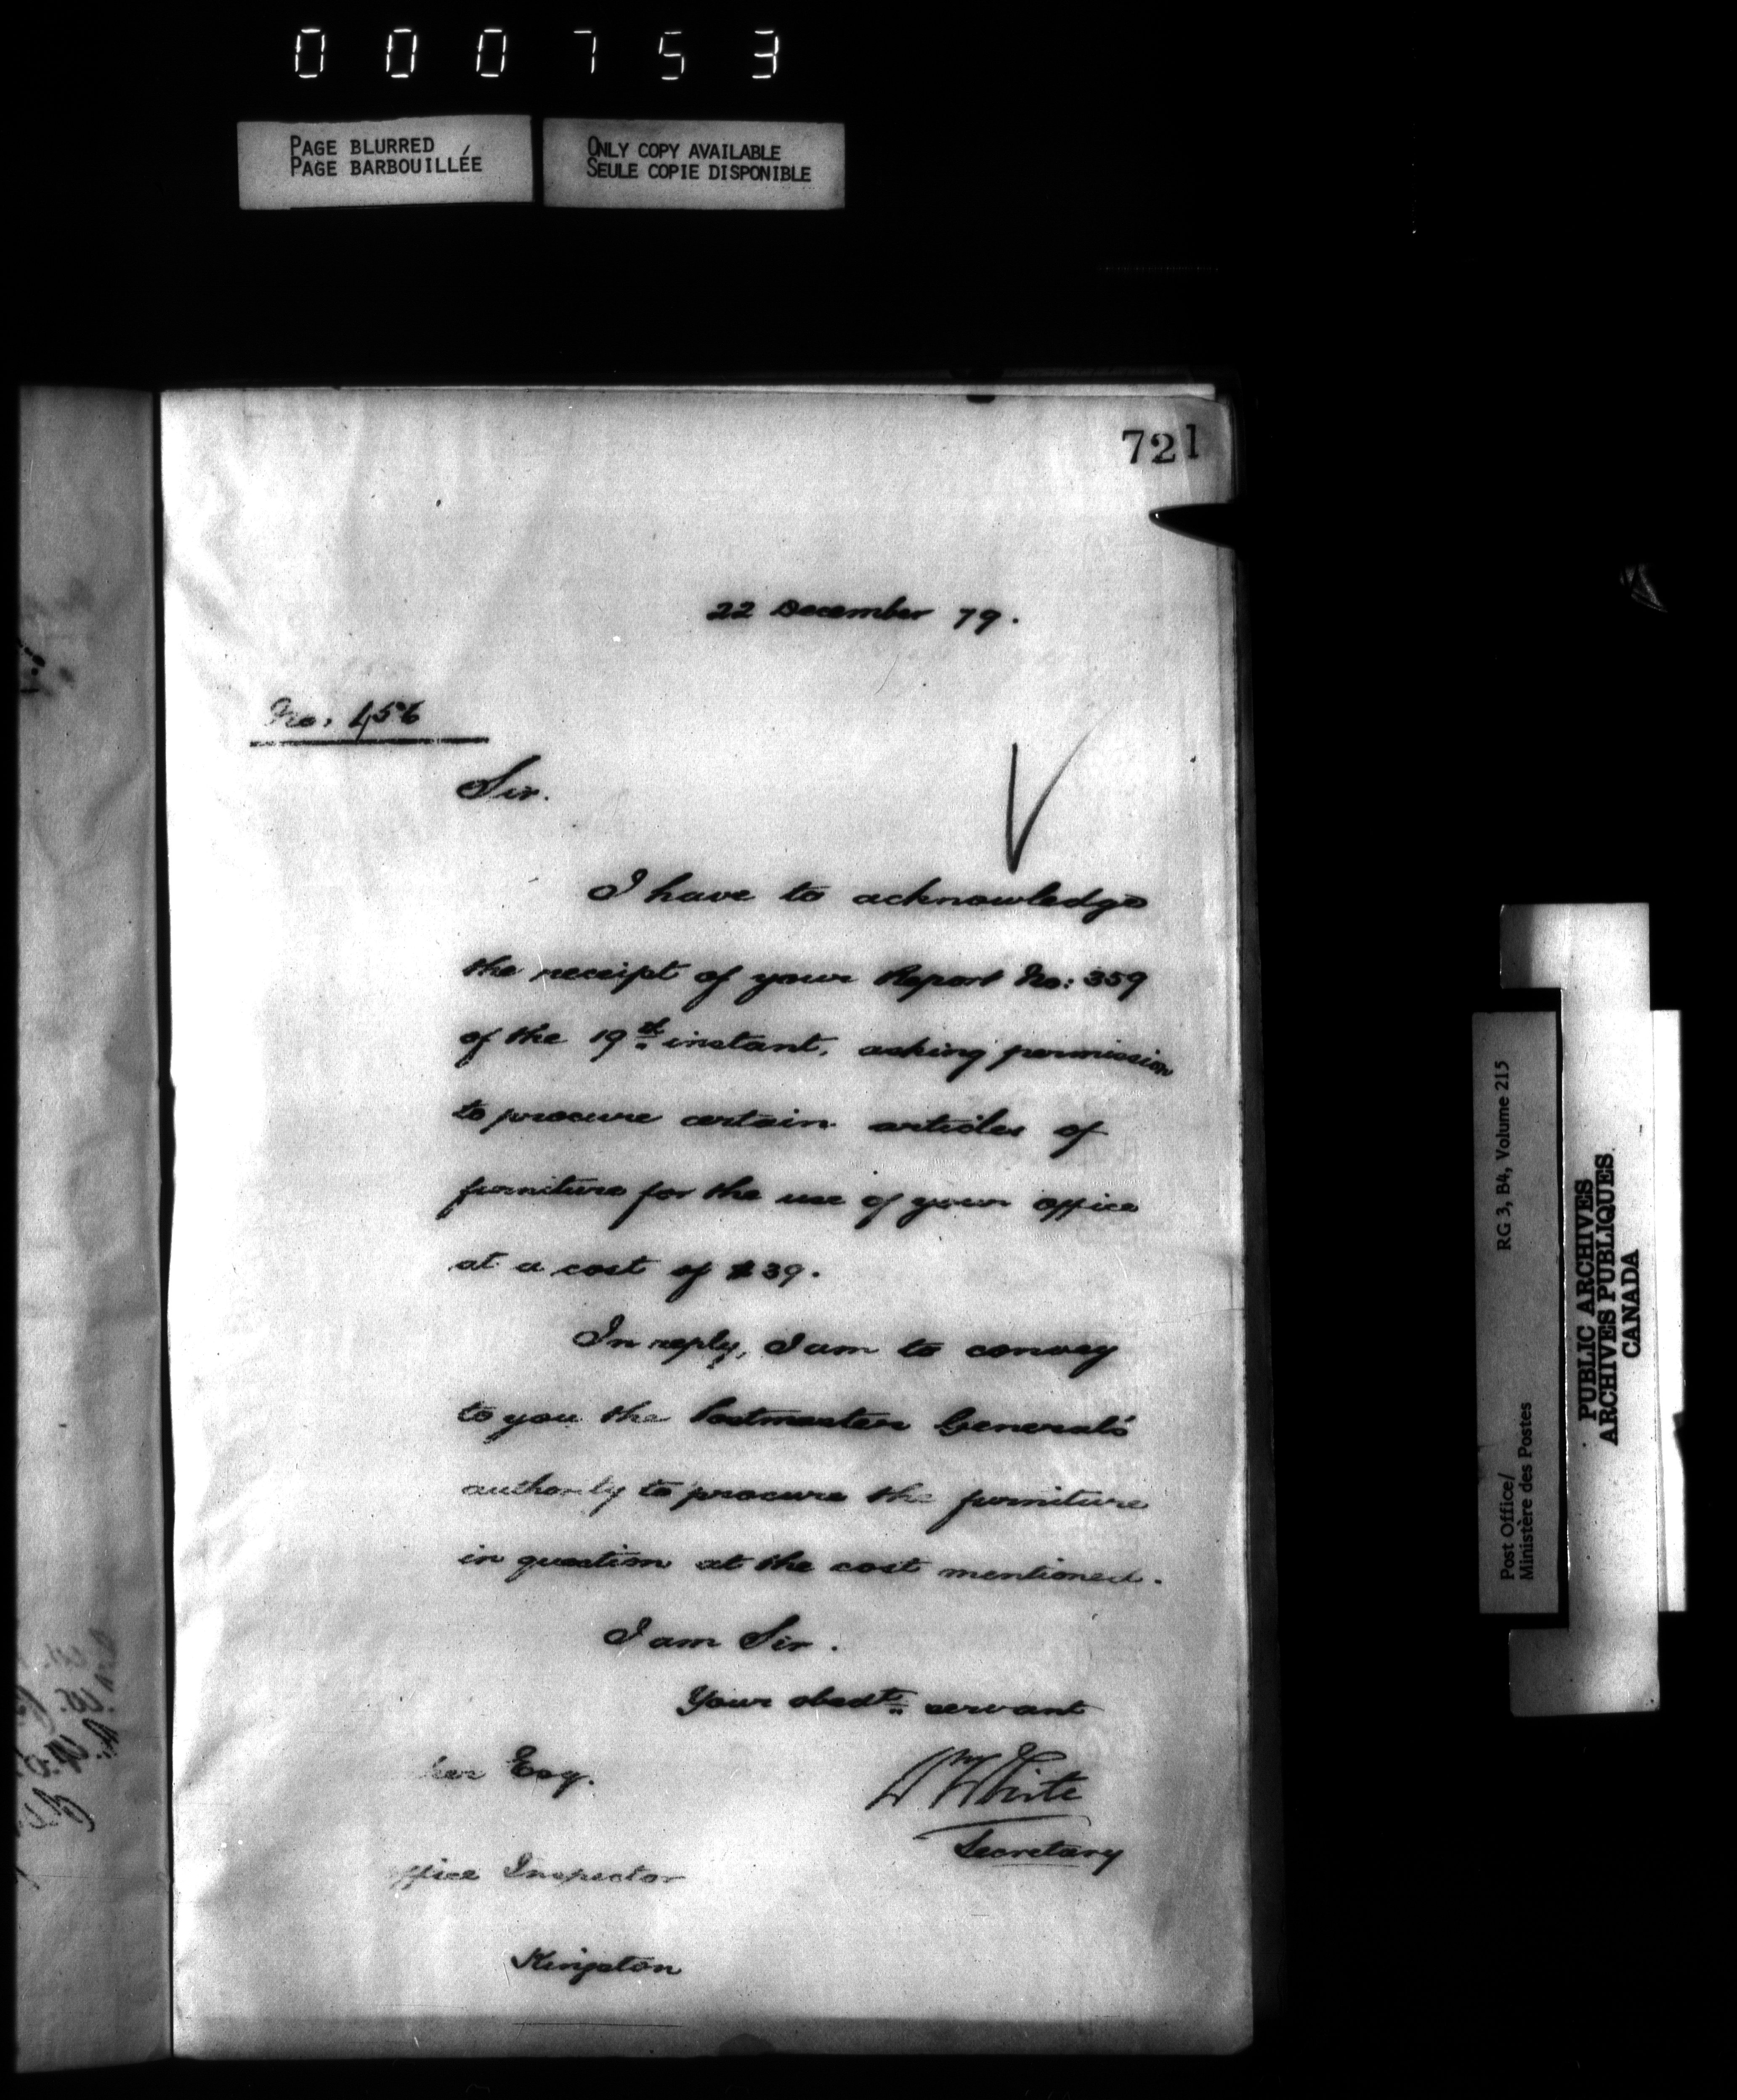 000753
PAGE BLURRED
PAGE BARBOUILLÉE
ONLY COPY AVAILABLE
SEULE COPIE DISPONIBLE
721
22 December 79.
No: 456
Sir.
I have to acknowledge
the receipt of your Report No: 359
of the 19th instant, asking permission
to procure certain articles of
furniture for the use of your office
at a cost of $39.
In reply, I am to convey
to you the Postmaster General's
authority to procure the furniture
in question at the cost mentioned.
I am Sir.
Your obedt servant
Wm White
Secretary
Esq.
ffice Inspector
Kingston
RG 3, B4, Volume 215
Post Office/
Ministère des Postes
PUBLIC ARCHIVES
ARCHIVES PUBLIQUES
CANADA